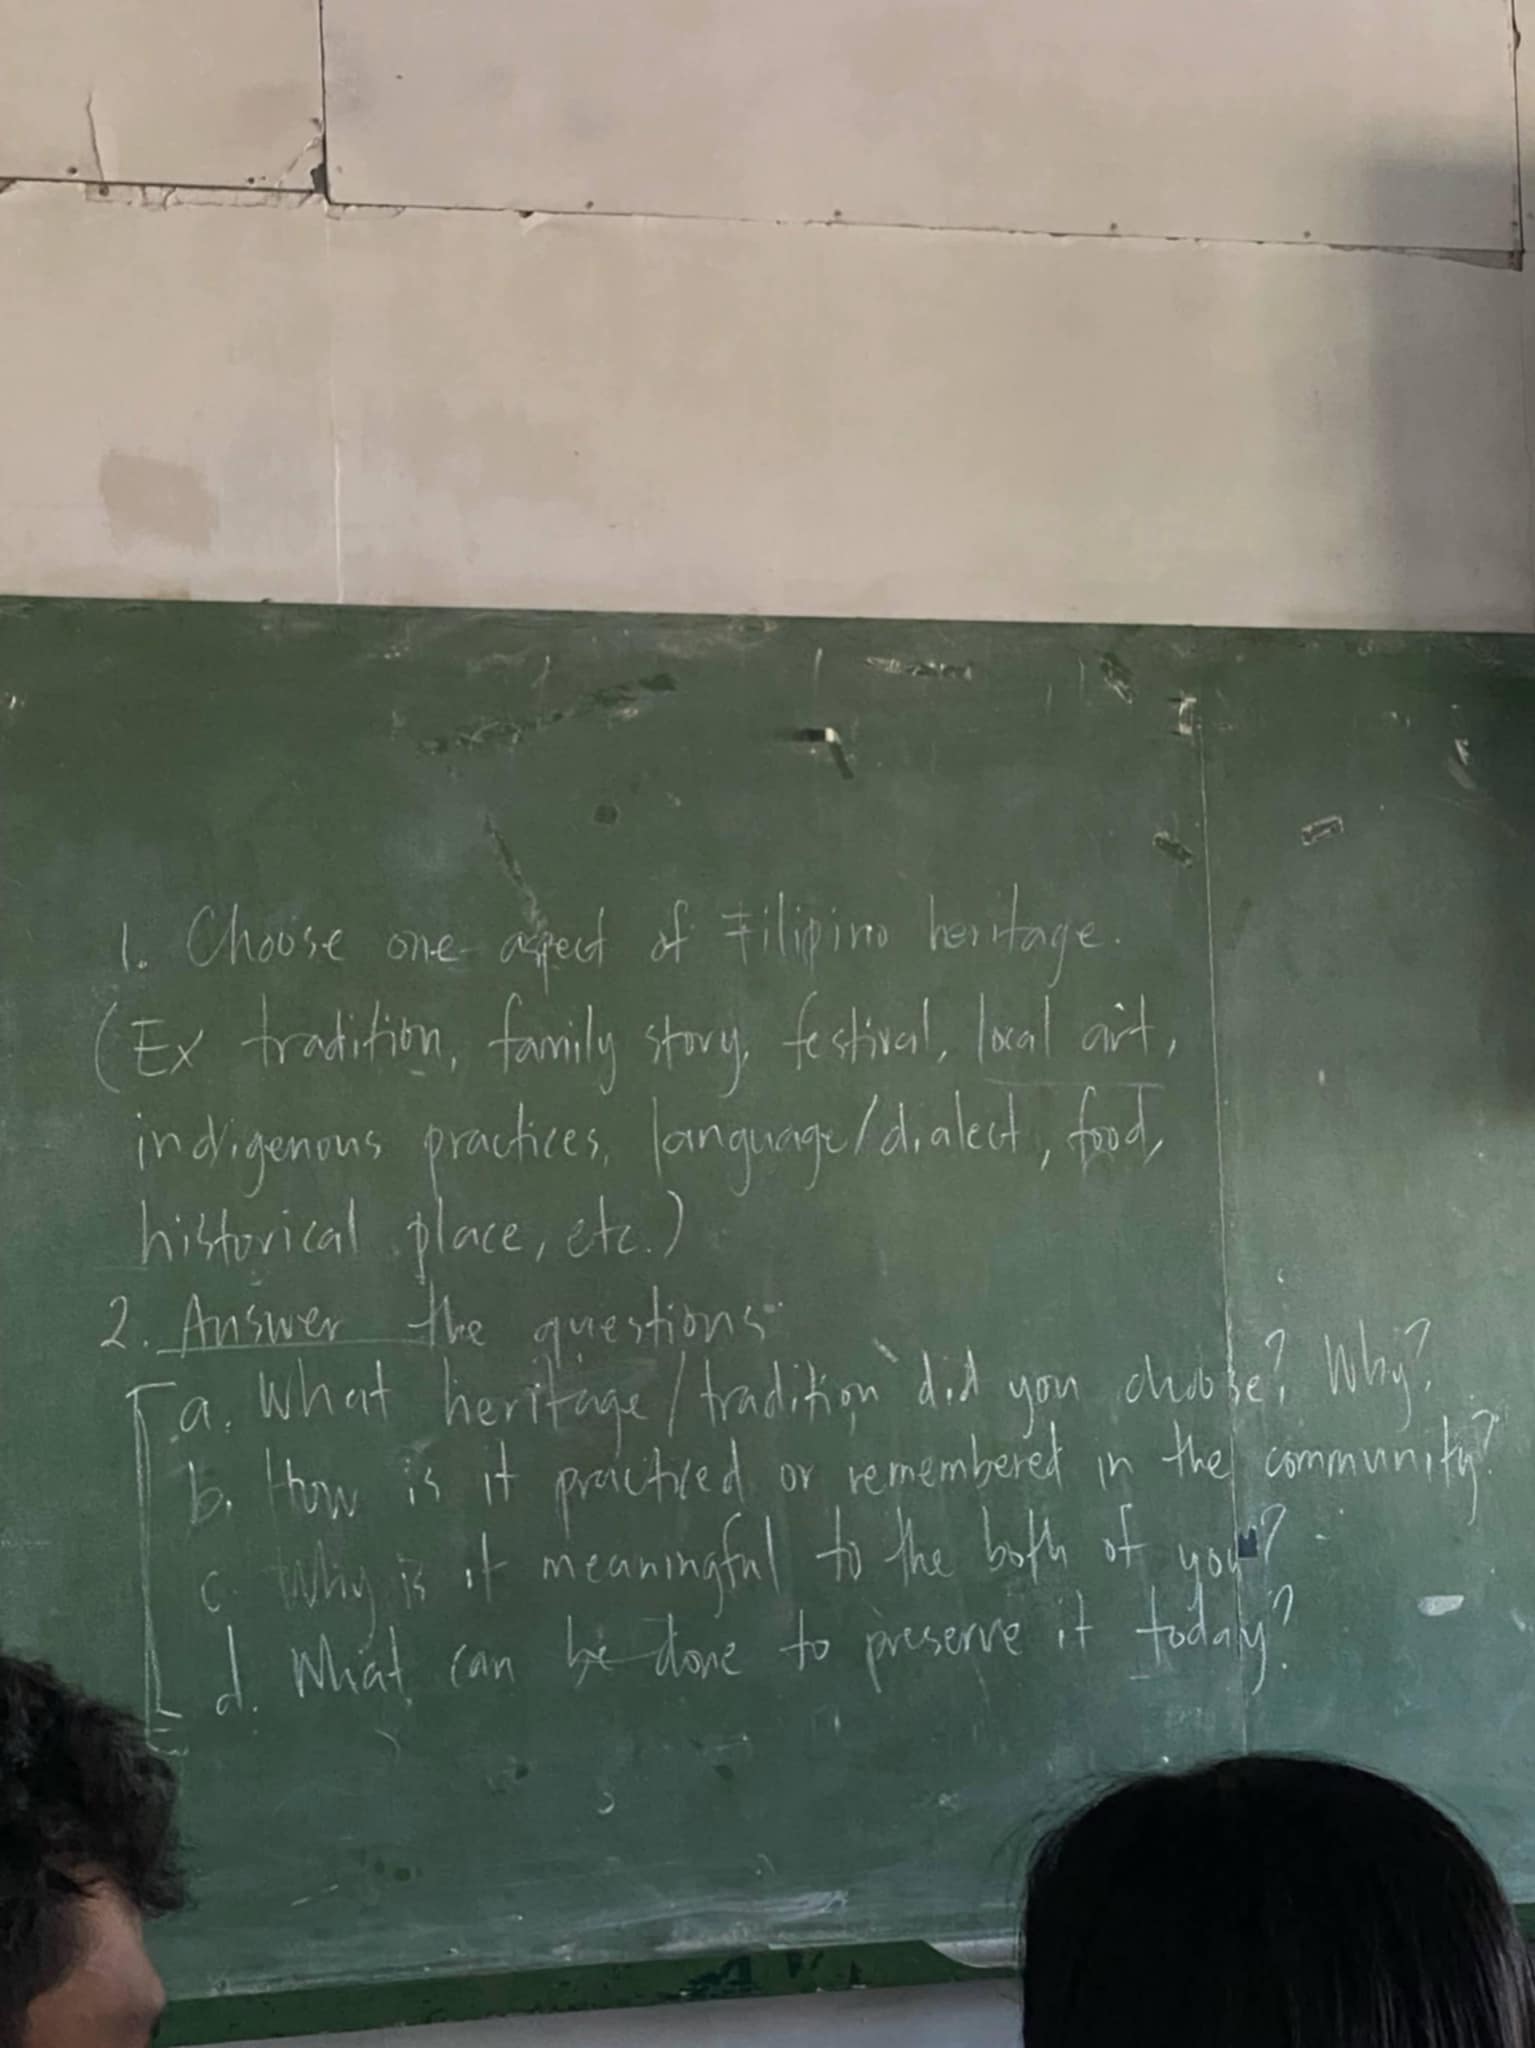 1. Choose one aspect of Filipino heritage.
(Ex tradition, family story, festival, local art,
indigenous practices, language/dialect, food,
historical place, etc.)
2. Answer the questions
a. What heritage/tradition did you choose? Why?
b. How is it practiced or remembered in the community?
c. Why is it meaningful to the both of you?
d. What can be done to preserve it today?